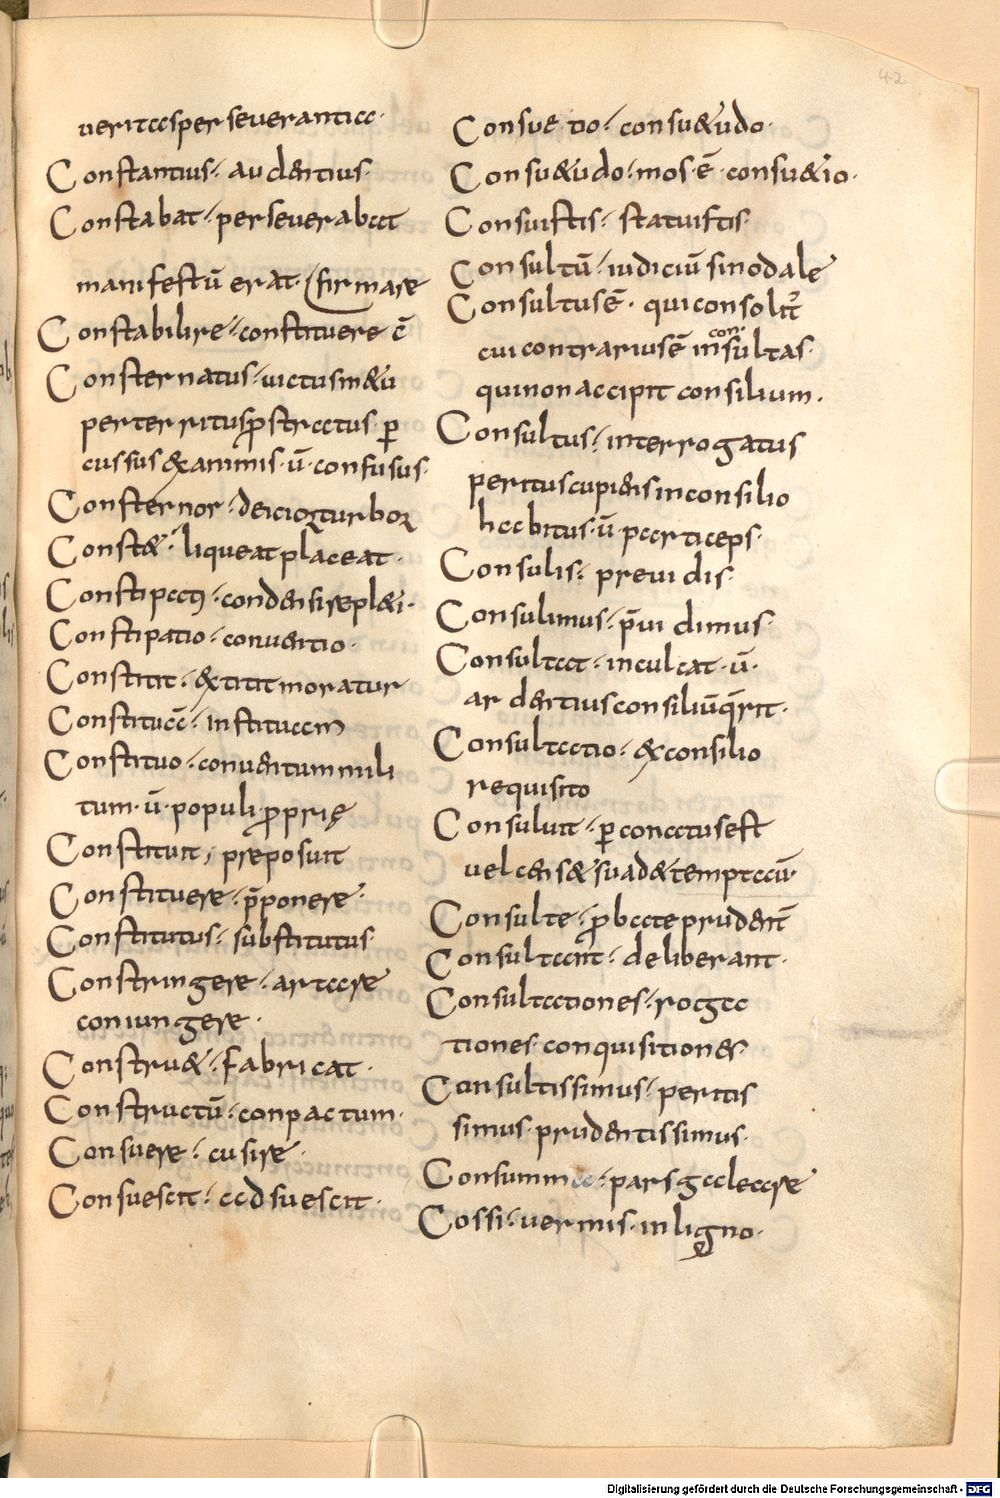 42
ueritas perseuerantiae·
Constantius· audentius·
Constabat· perseuerabat
manifestū erat· (firmare
Constabilire· constituere ē
Consternatus· uictus metu
perterritus ꝓstratus ꝑ
cussus exanimis· ū· confusus·
Consternor· deicior turbor
Constet· liqueat placeat·
Constipat᷒· condensire plaei·
Constipatio· conuentio·
Constitit· extitit moratur
Constituā· Instituam
Constituo· conuentum mili
tum· ū· populi ꝓprię
Constituit; preposuit
Constituere· p̄ponere·
Constitutus· substitutus·
Constringere· artare
coniungere·
Construet· fabricat·
Constructū· conpactum·
Consuere· cusire·
Consuescit· adsuescit·
Consue tio· consuetudo·
Consuetudo· mos·ē· consuetio·
Consuistis· statuistis·
Consultū· iudiciū sinodale
Consultus ē· qui consolit᷒
cui contrarius ē in con sultas·
qui non accipit consilium·
Consultus· interrogatus
peritus cupidus in consilio
habitus· ū· particeps·
Consulis· preuidis·
Consulimus· p̄uidimus·
Consultat· inculcat· ū·
ardentius consiliū q̄rit·
Consultatio· ex consilio
requisito
Consuluit· ꝑconctus est
uel censet suadet temptat·
Consulte· ꝓbate prudent̄
Consultant· deliberant·
Consultationes· roga
tiones· conquisitiones
Consultissimus· peritis
simus· prudentissimus·
Consumma· pars galeare
Cossi· uermis· in ligno·
Digitalisierung gefördert durch die Deutsche Forschungsgemeinschaft - DFG